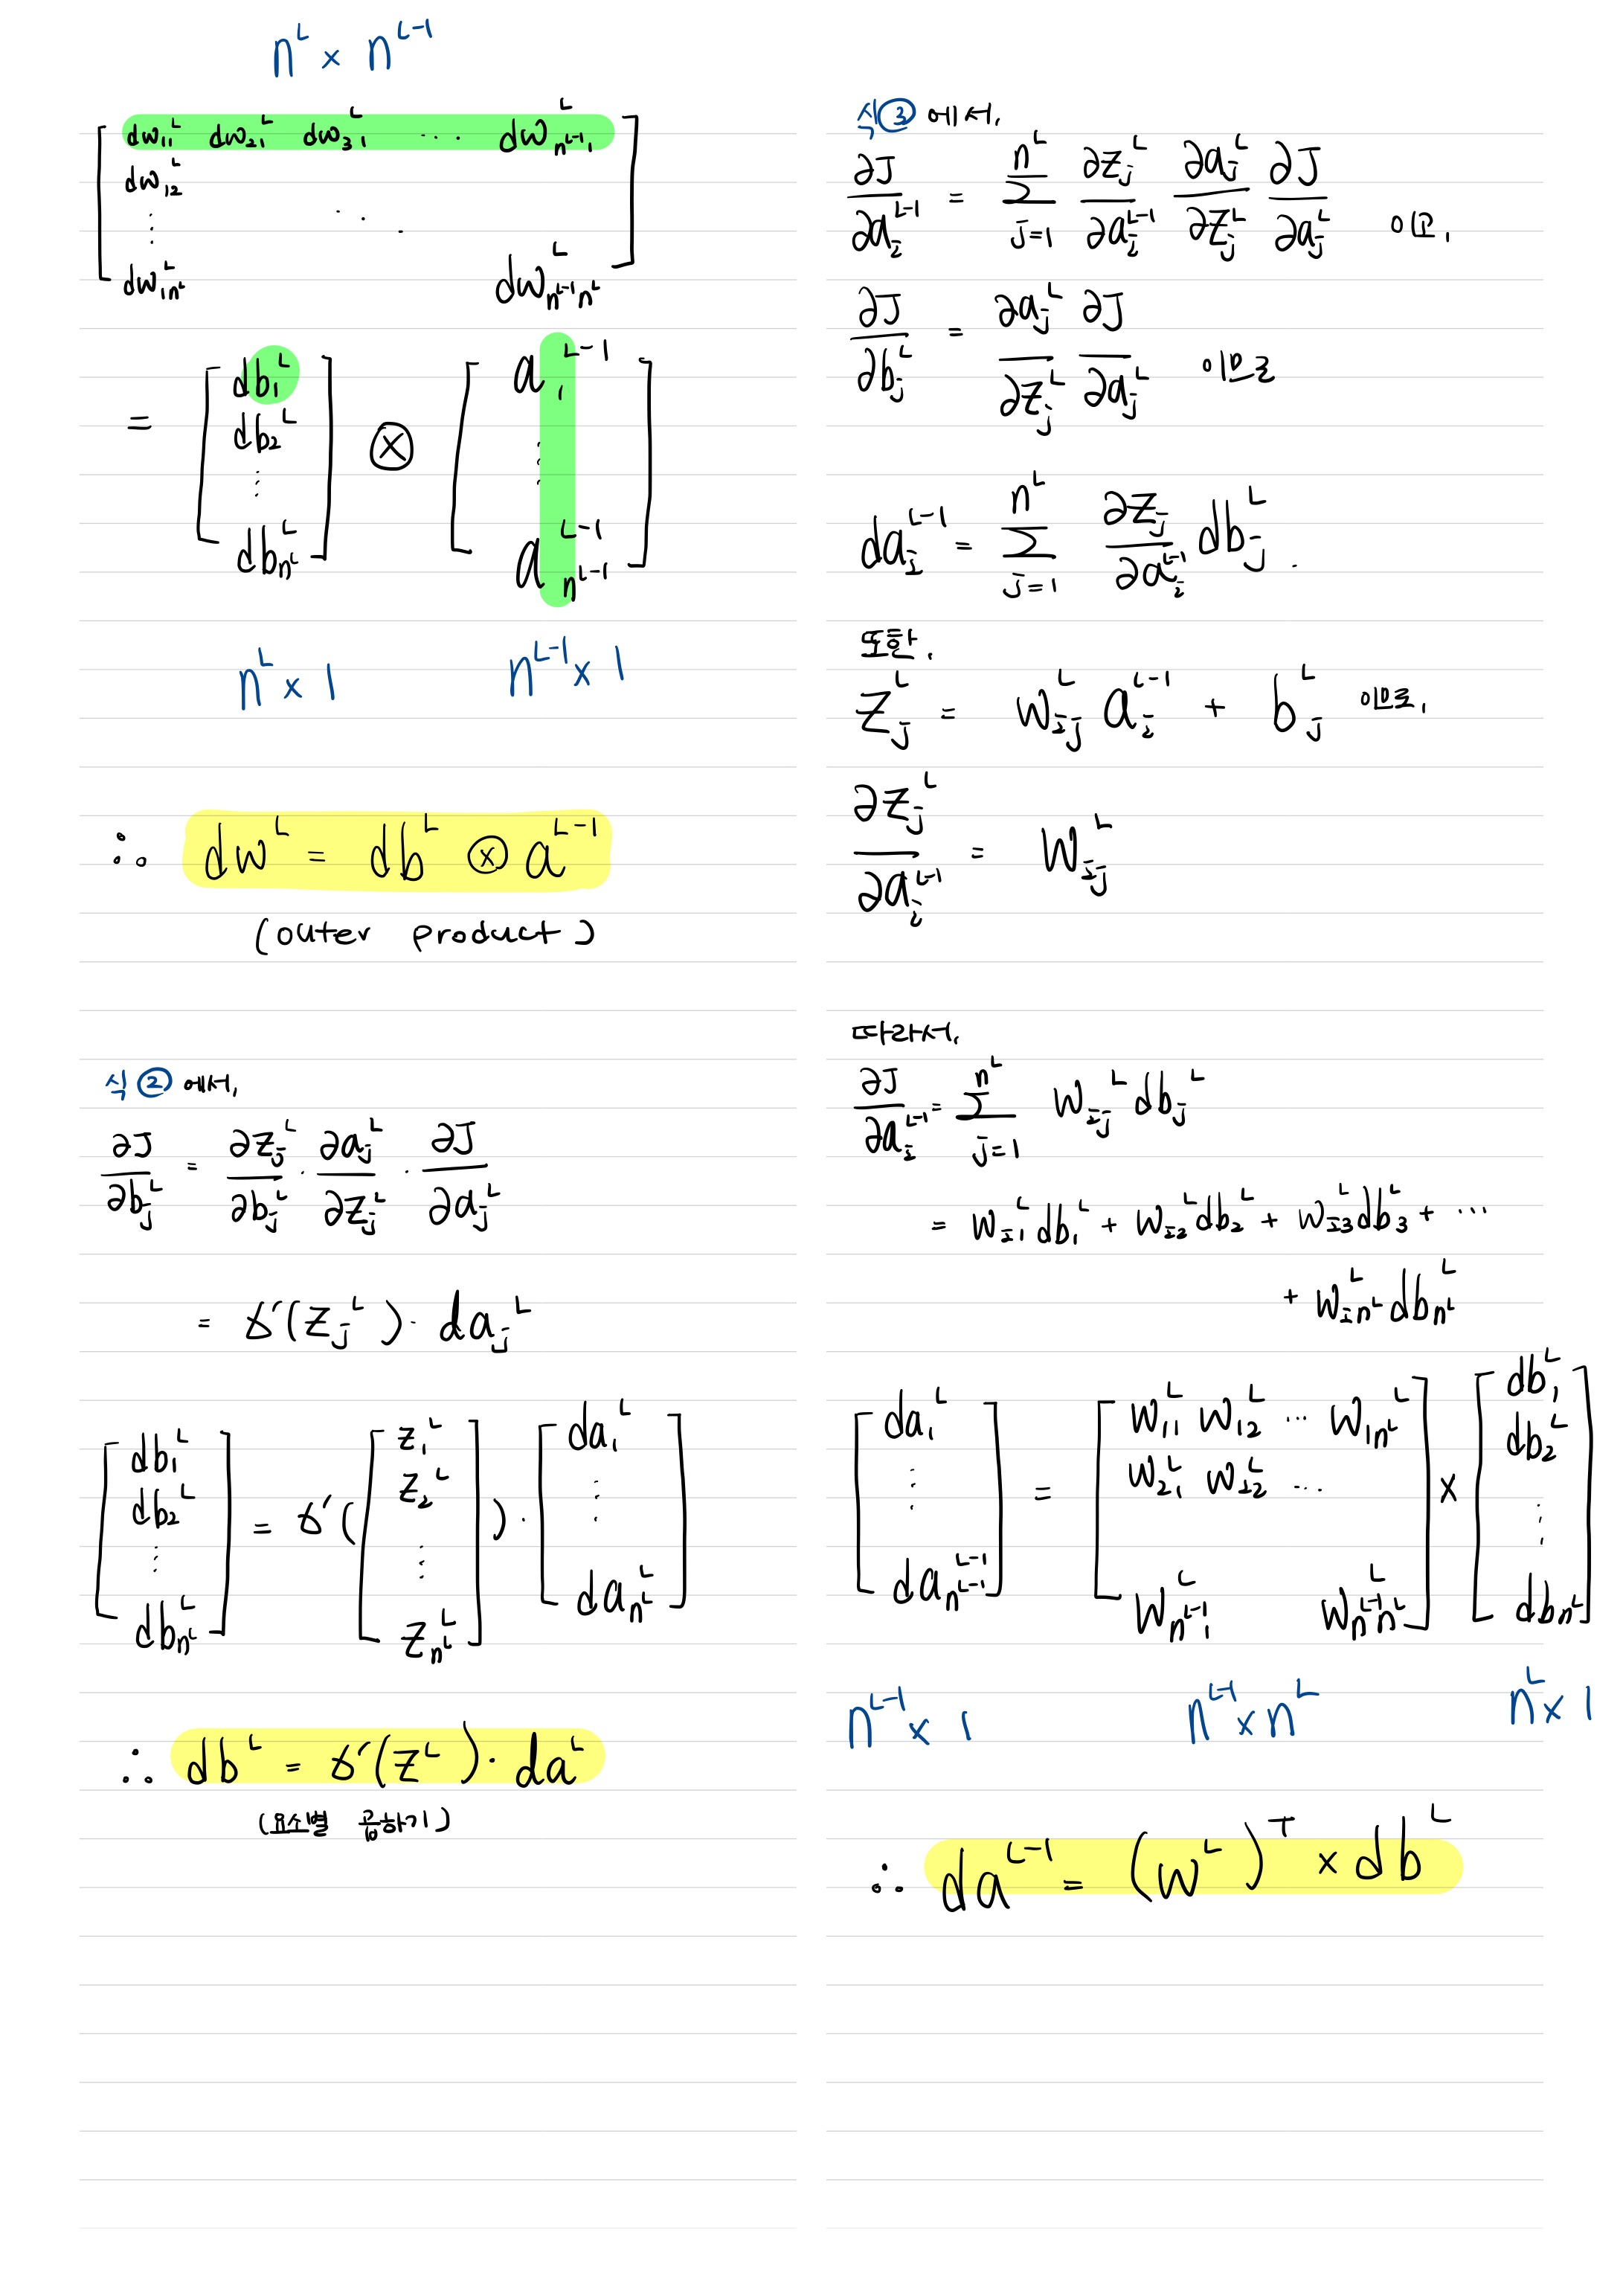 n^L × n^{L-1}
[ dw_{11}^L dw_{21}^L dw_{31}^L ⋯ dw_{n^{L-1}1}^L
dw_{12}^L
⋮ ⋱
dw_{1n^L}^L dw_{n^{L-1}n^L}^L ]
= [ db_1^L db_2^L ⋮ db_{n^L}^L ] ⊗ [ a_1^{L-1} ⋮ a_{n^{L-1}}^{L-1} ]
n^L × 1 n^{L-1} × 1
∴ dw^L = db^L ⊗ a^{L-1}
(outer product)
식 ② 에서,
∂J/∂b_j^L = ∂z_j^L/∂b_j^L · ∂a_j^L/∂z_j^L · ∂J/∂a_j^L
= σ'(z_j^L) · da_j^L
[ db_1^L db_2^L ⋮ db_{n^L}^L ] = σ'( [ z_1^L z_2^L ⋮ z_{n^L}^L ] ) · [ da_1^L ⋮ da_{n^L}^L ]
∴ db^L = σ'(z^L) · da^L
(요소별 곱하기)
식 ③ 에서,
∂J/∂a_i^{L-1} = Σ_{j=1}^{n^L} ∂z_j^L/∂a_i^{L-1} ∂a_j^L/∂z_j^L ∂J/∂a_j^L 이고,
∂J/∂b_j^L = ∂a_j^L/∂z_j^L ∂J/∂a_j^L 이므로
da_i^{L-1} = Σ_{j=1}^{n^L} ∂z_j/∂a_i^{L-1} db_j^L.
또한,
z_j^L = w_{ij}^L a_i^{L-1} + b_j^L 이므로,
∂z_j^L/∂a_i^{L-1} = w_{ij}^L
따라서,
∂J/∂a_i^{L-1} = Σ_{j=1}^{n^L} w_{ij}^L db_j^L
= w_{i1}^L db_1^L + w_{i2}^L db_2^L + w_{i3}^L db_3^L + ⋯
+ w_{in^L}^L db_{n^L}^L
[ da_1^L ⋮ da_{n^{L-1}}^{L-1} ] = [ w_{11}^L w_{12}^L ⋯ w_{1n^L}^L
w_{21}^L w_{22}^L ⋯
w_{n^{L-1}1}^L w_{n^{L-1}n^L}^L ] × [ db_1^L db_2^L ⋮ db_{n^L} ]
n^{L-1} × 1 n^{L-1} × n^L n^L × 1
∴ da^{L-1} = (w^L)^T × db^L